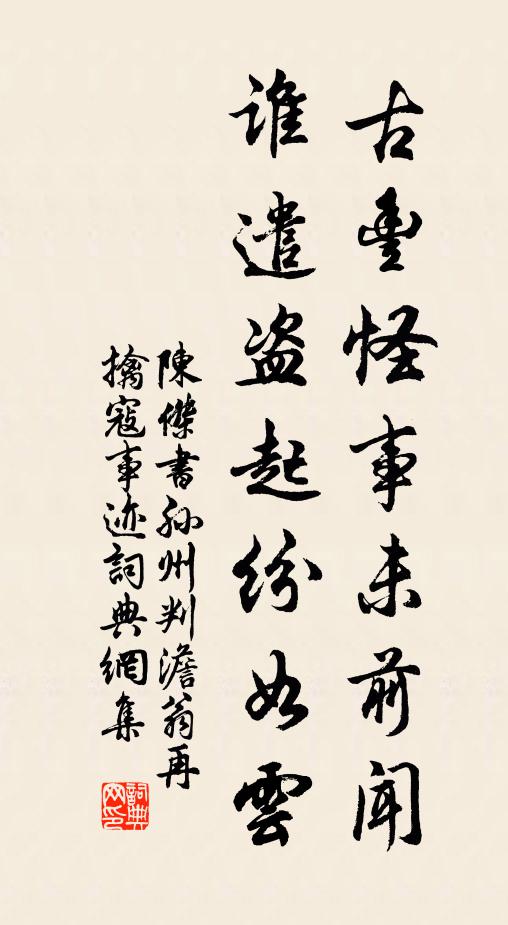 古豐怪事未前聞
誰遣盜起紛如雲
陳傑書孫州判澹翁再
擒寇事迹詞典網集
詞典网印